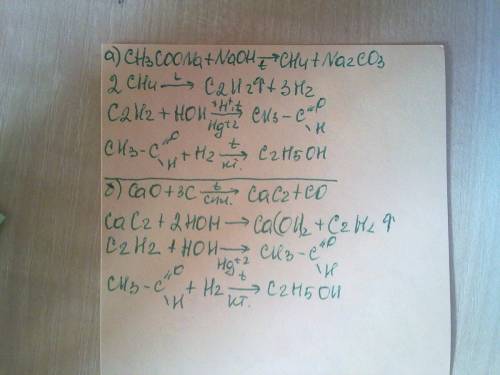 а) CH3COONa + NaOH →t CH4 + Na2CO3
2 CH4 →t C2H2↑ + 3H2
C2H2 + HOH →H+,t Hg+2 CH3-C=O H
CH3-C=O H + H2 →t кт. C2H5OH
б) CaO + 3C →t спл. CaC2 + CO
CaC2 + 2HOH → Ca(OH)2 + C2H2 ↑
C2H2 + HOH → Hg+2 CH3-C=O H
CH3-C=O H + H2 →t кт. C2H5OH